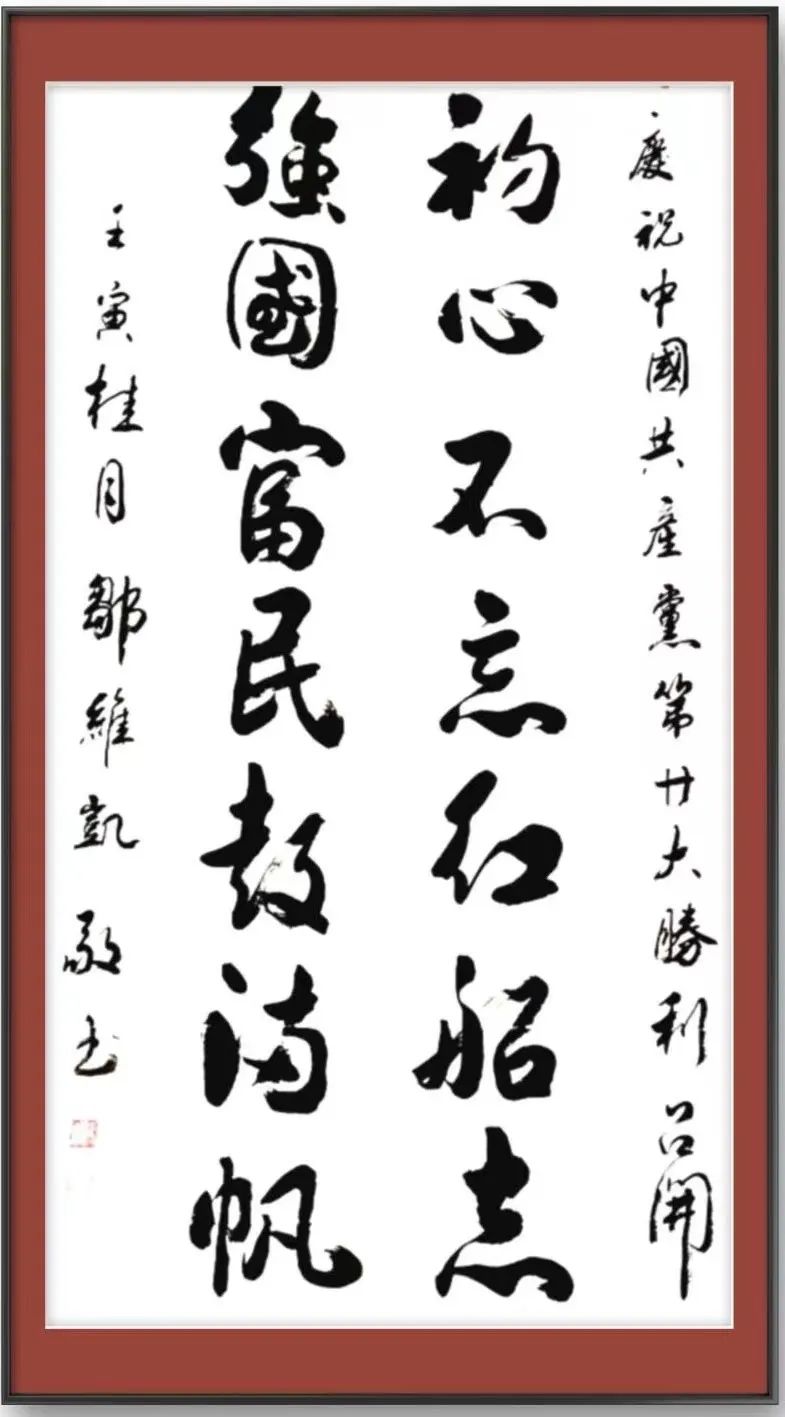 慶祝中國共產黨第廿大勝利召開
初心不忘红船志
強國富民鼓满帆
壬寅桂月鄒維凱敬书